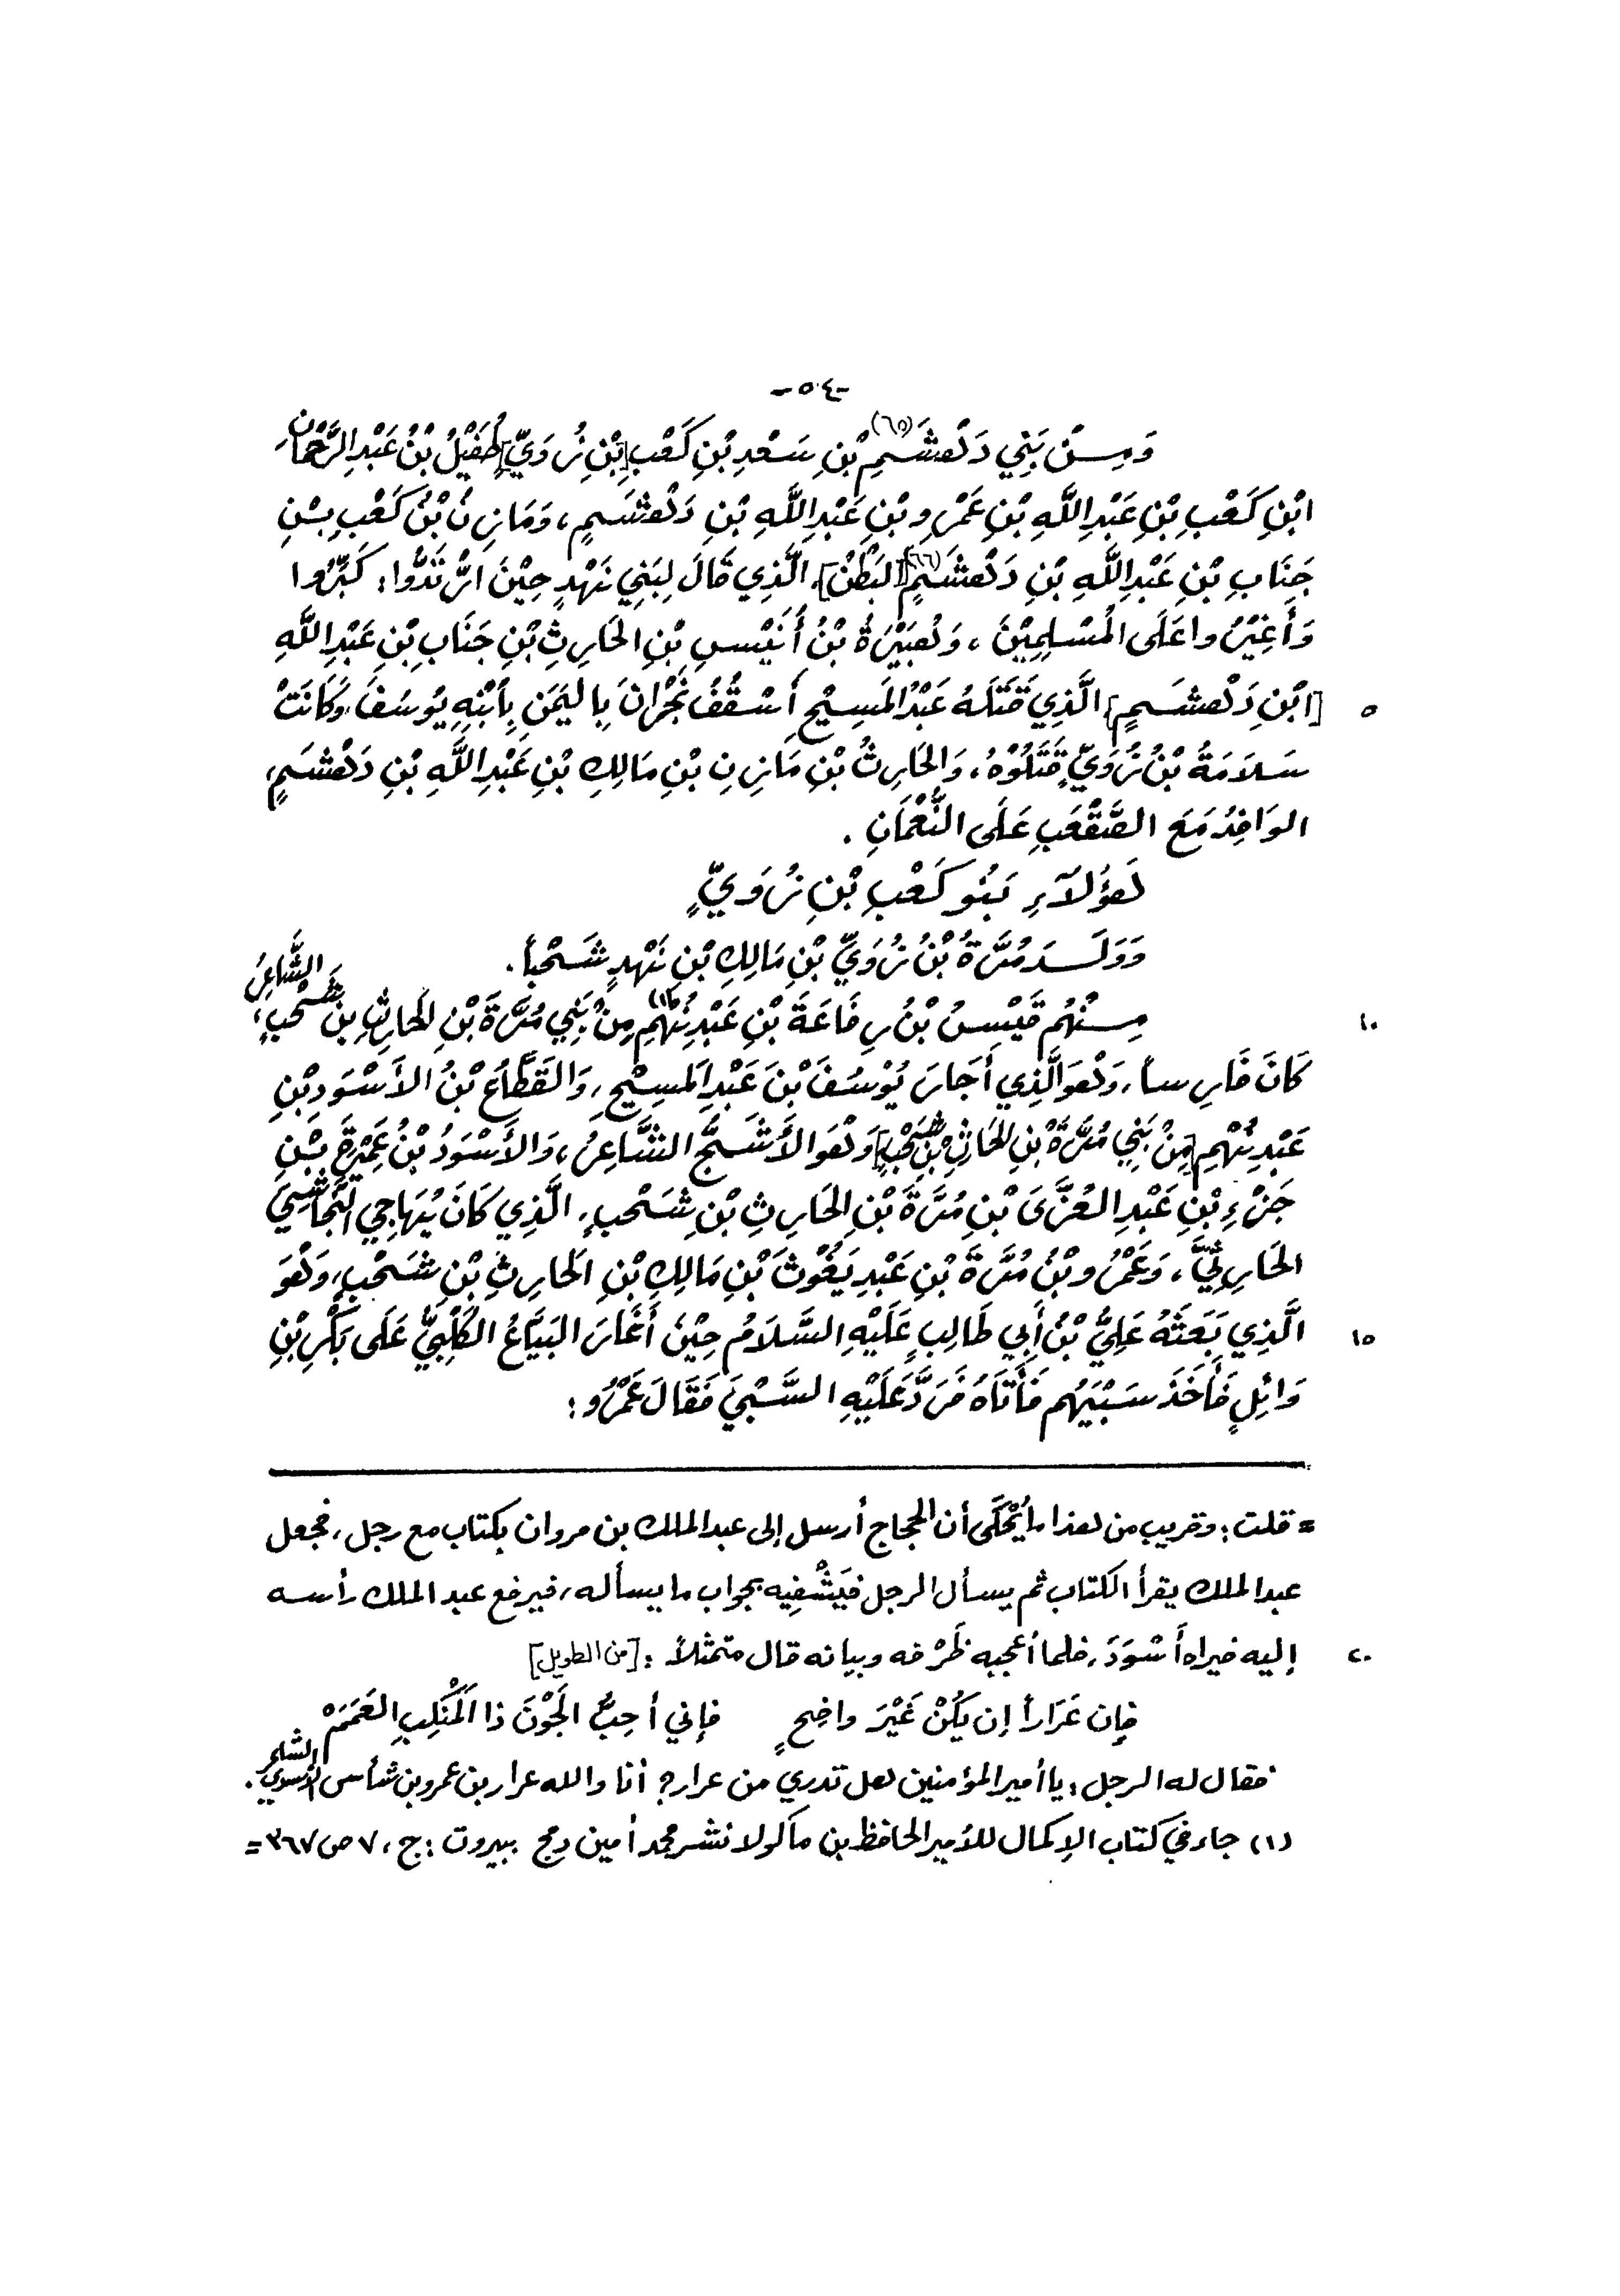 -٥٠٤-
وَمِنْ بَنِي دَهْشَمِ (٦٥) بْنِ سَعْدِ بْنِ كَعْبِ [بْنِ زُوَيٍّ] طُفَيْلُ بْنُ عَبْدِ الرَّحْمَانِ
ابْنِ كَعْبِ بْنِ عَبْدِ اللَّهِ بْنِ عَمْرِو بْنِ عَبْدِ اللَّهِ بْنِ دَهْشَمٍ، وَمَازِنُ بْنُ كَعْبِ بْنِ
جَنَابِ بْنِ عَبْدِ اللَّهِ بْنِ دَهْشَمٍ (٦٦) [البَطْنُ]، الَّذِي قَالَ لِبَنِي نَهْدٍ حِيْنَ ارْتَدُّوا: كَبِّرُوا
وَأَغِيْرُوا عَلَى الْمُسْلِمِيْنَ، وَهُبَيْرَةُ بْنُ أُنَيْسِ بْنِ الحَارِثِ بْنِ جَنَابِ بْنِ عَبْدِ اللَّهِ
[ابْنِ دَهْشَمٍ] الَّذِي قَتَلَهُ عَبْدُ المَسِيْحِ أَسْقُفُ نَجْرَانَ بِاليَمَنِ بِابْنِهِ يُوسُفَ، وَكَانَتْ ٥
سَلَامَةُ بْنُ زُوَيٍّ قَتَلُوْهُ، وَالحَارِثُ بْنِ مَازِنِ بْنِ مَالِكِ بْنِ عَبْدِ اللَّهِ بْنِ دَهْشَمٍ،
الوَافِدُ مَعَ الصَّقْعَبِ عَلَى النُّعْمَانِ.
هَؤُلَاءِ بَنُو كَعْبِ بْنِ زُوَيٍّ
وَوَلَدَ مُرَّةُ بْنُ زُوَيِّ بْنِ مَالِكِ بْنِ نَهْدٍ شَحْباً.
مِنْهُم قَيْسُ بْنُ رِفَاعَةَ بْنِ عَبْدِ نُهْمِ (١) مِنْ بَنِي مُرَّةَ بْنِ الحَارِثِ بْنِ شَحْبٍ، الشَّاعِرُ ١٠
كَانَ فَارِساً، وَهُوَ الَّذِي أَجَارَ يُوْسُفَ بْنَ عَبْدِ المَسِيْحِ، وَالقَطَّاعُ بْنُ الأَسْوَدِ بْنِ
عَبْدِ نُهْمٍ [مِنْ بَنِي مُرَّةَ بْنِ الحَارِثِ بْنِ شَحْبٍ] وَهُوَ الأَشَجُّ الشَّاعِرُ، وَالأَسْوَدُ بْنُ عَمِيْرَةَ بْنِ
جَزْءِ بْنِ عَبْدِ العُزَّى بْنِ مُرَّةَ بْنِ الحَارِثِ بْنِ شَحْبٍ، الَّذِي كَانَ يُهَاجِي النَّجَاشِيَّ
الحَارِثِيَّ، وَعَمْرُو بْنُ مُرَّةَ بْنِ عَبْدِ يَغُوْثَ بْنِ مَالِكِ بْنِ الحَارِثِ بْنِ شَحْبٍ، وَهُوَ
الَّذِي بَعَثَهُ عَلِيُّ بْنُ أَبِي طَالِبٍ عَلَيْهِ السَّلَامُ حِيْنَ أَغَارَ البَيَّاعُ الكَلْبِيُّ عَلَى بَكْرِ بْنِ ١٥
وَائِلٍ فَأَخَذَ سَبْيَهُم فَأَتَاهُ فَرَدَّ عَلَيْهِ السَّبْيَ فَقَالَ عَمْرُو:
= قلت: وقريب من هذا ما يُحْكَى أن الحجاج أرسل إلى عبد الملك بن مروان بكتاب مع رجل، فجعل
عبد الملك يقرأ الكتاب ثم يسأل الرجل فيَشْفِيه بجواب ما يسأله، فيرفع عبد الملك رأسه
إليه فيراه أَسْوَدَ، فلما أعجبه ظَرْفه وبيانه قال متمثلاً: [من الطويل] ٢٠
فإن عَرَاراً إن يكُنْ غَيْرَ واضِحٍ فإني أُحِبُّ الجَوْنَ ذا المَنْكِبِ العَمَمْ
فقال له الرجل: يا أمير المؤمنين هل تدري من عرار؟ أنا والله عرار بن عمرو بن شأس الأسدي الشاعر.
(١) جاء في كتاب الإكمال للأمير الحافظ بن ماكولا نشر محمد أمين دمج ببيروت: ج، ٧ ص ٣٦٧ =